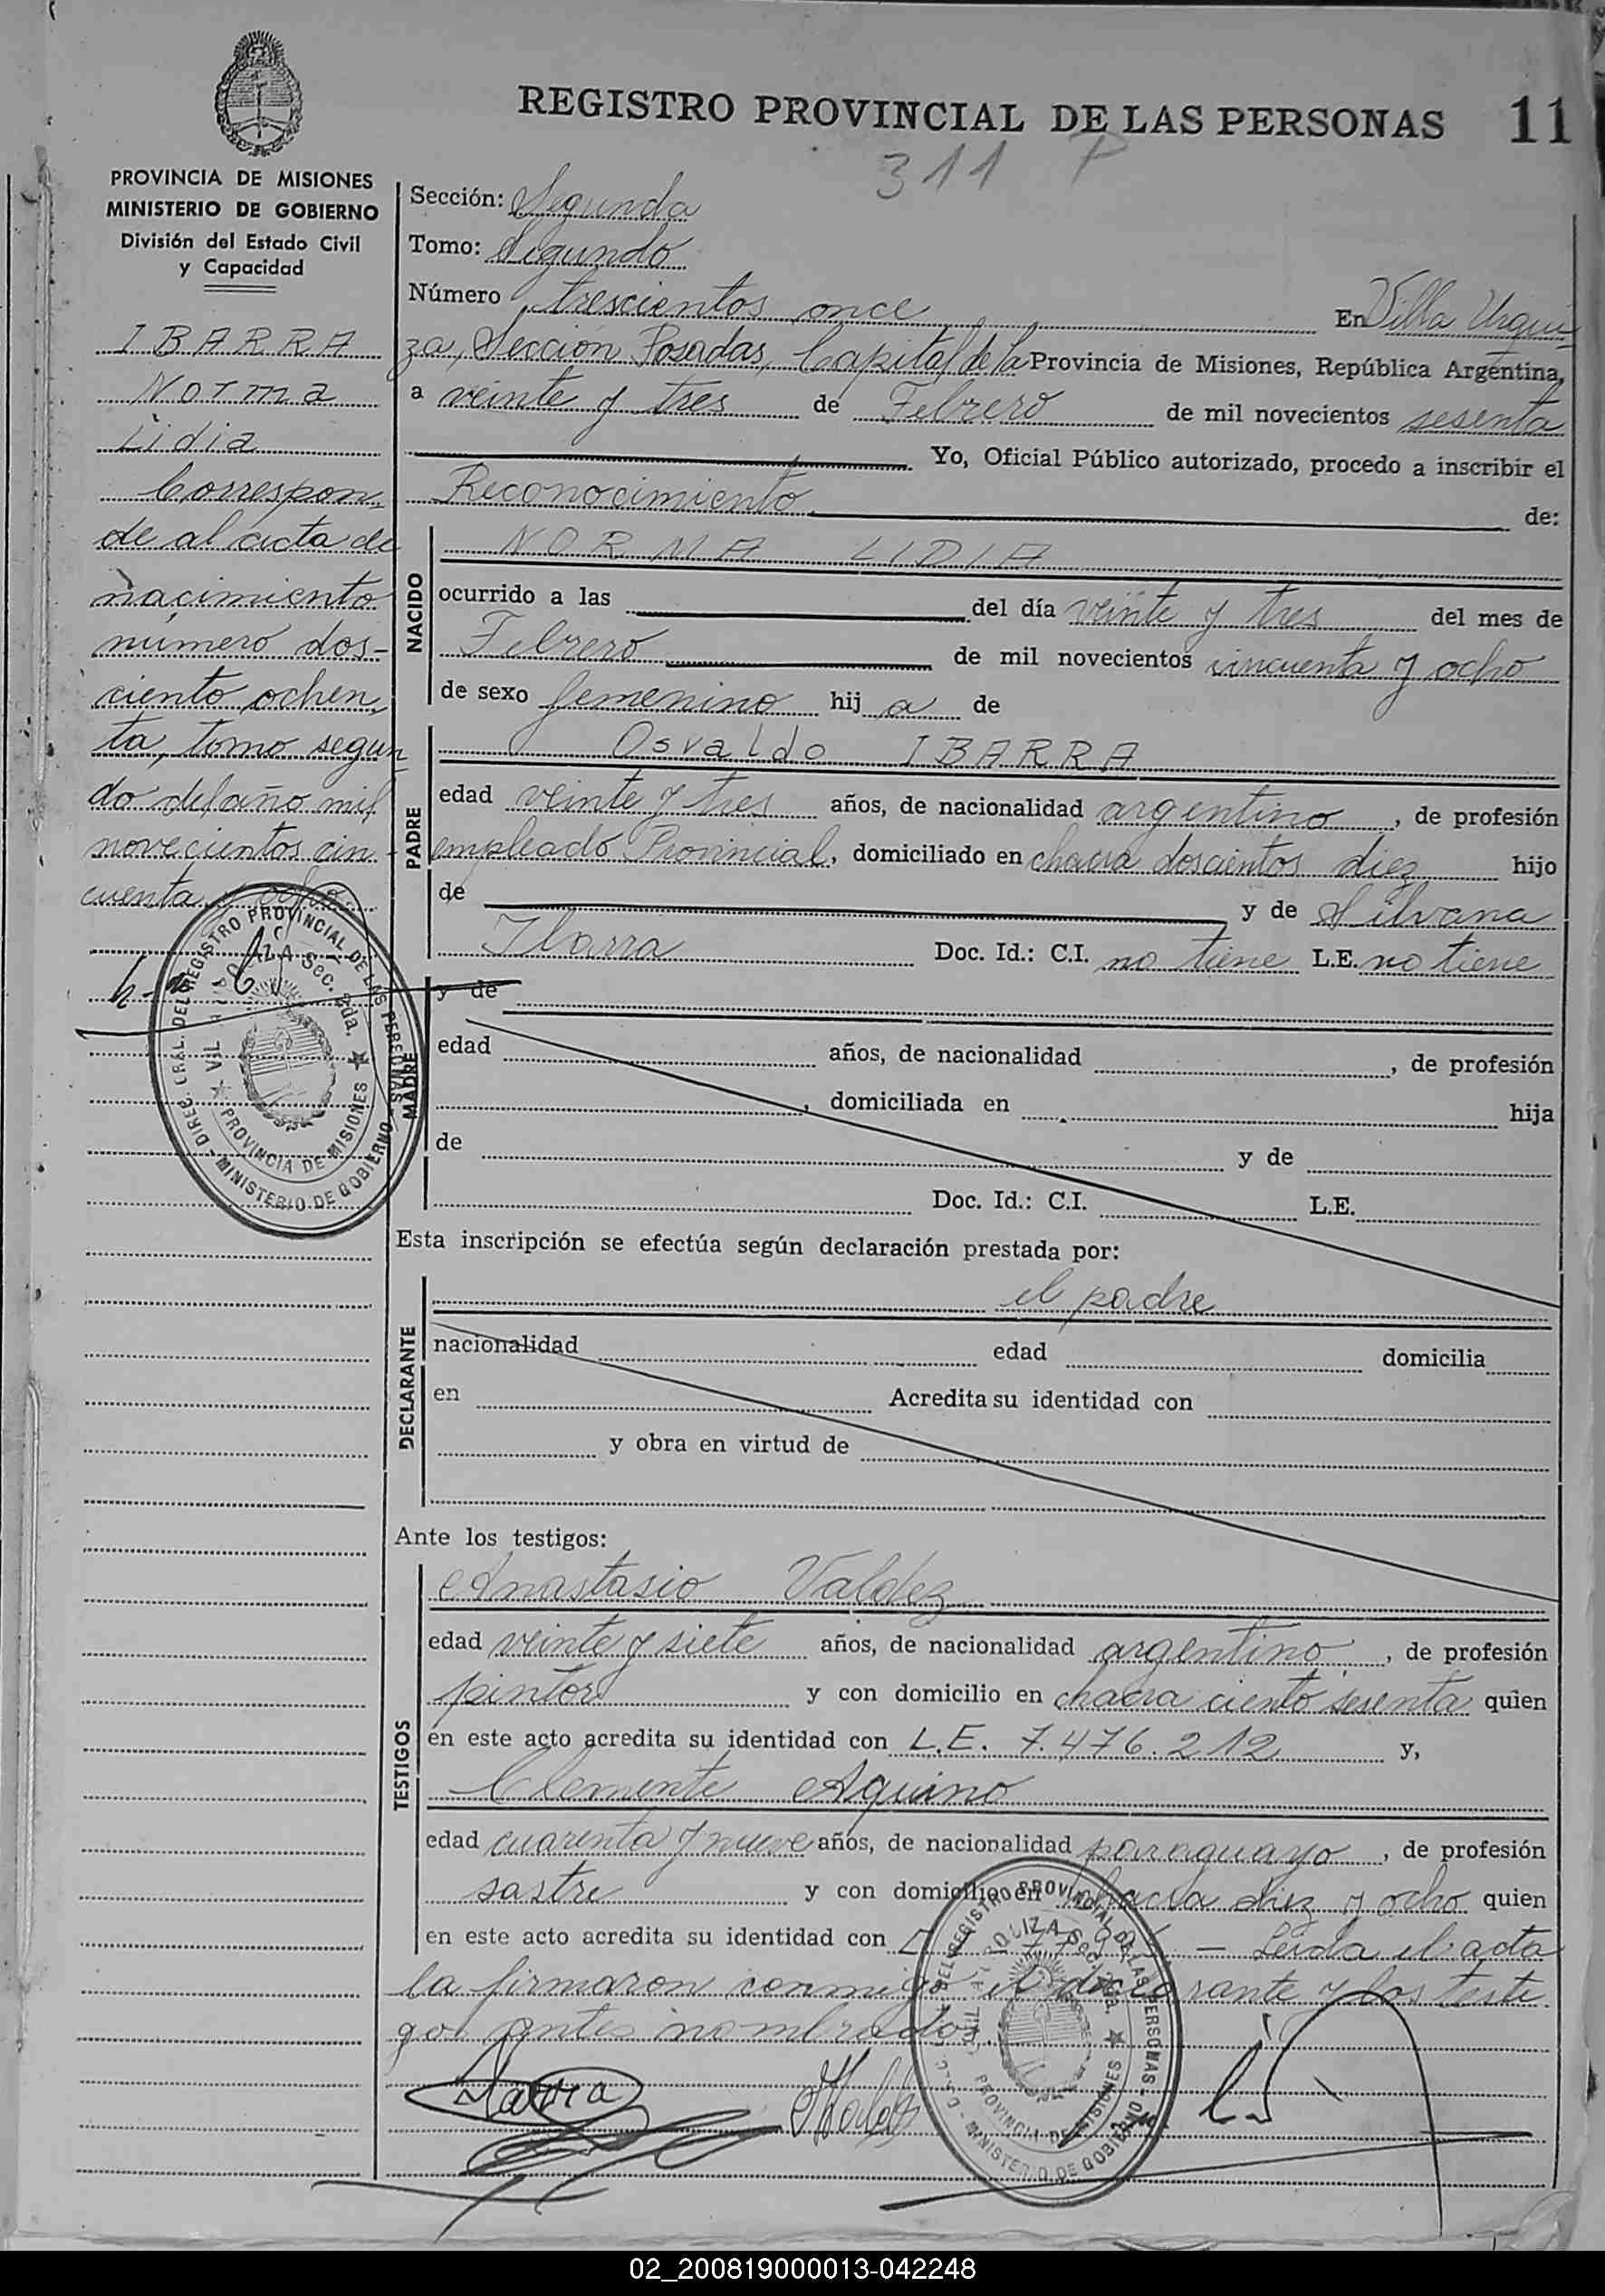 REGISTRO PROVINCIAL DE LAS PERSONAS 11
311 P
PROVINCIA DE MISIONES
MINISTERIO DE GOBIERNO
División del Estado Civil
y Capacidad
IBARRA
Norma
Lidia
Correspon-
de al acta de
nacimiento
número dos-
ciento ochen-
ta, tomo segun-
do del año mil
novecientos cin-
cuenta y ocho
Sección: Segunda
Tomo: Segundo
Número trescientos once En Villa Urqui-
za, Sección Posadas, Capital de la Provincia de Misiones, República Argentina,
a veinte y tres de Febrero de mil novecientos sesenta
Yo, Oficial Público autorizado, procedo a inscribir el
Reconocimiento de:
NACIDO
NORMA LIDIA
ocurrido a las del día veinte y tres del mes de
Febrero de mil novecientos cincuenta y ocho
de sexo femenino hij a de
PADRE
Osvaldo IBARRA
edad veinte y tres años, de nacionalidad argentino, de profesión
empleado Provincial, domiciliado en chacra doscientos diez hijo
de y de Silvana
Ibarra Doc. Id.: C.I. no tiene L.E. no tiene
MADRE
y de
edad años, de nacionalidad , de profesión
, domiciliada en hija
de y de
Doc. Id.: C.I. L.E.
Esta inscripción se efectúa según declaración prestada por:
DECLARANTE
el padre
nacionalidad edad domicilia
en Acredita su identidad con
y obra en virtud de
Ante los testigos:
TESTIGOS
Anastasio Valdez
edad veinte y siete años, de nacionalidad argentino, de profesión
pintor y con domicilio en chacra ciento sesenta quien
en este acto acredita su identidad con L.E. 7.476.212 y,
Clemente Aquino
edad cuarenta y nueve años, de nacionalidad paraguayo, de profesión
sastre y con domicilio en chacra diez y ocho quien
en este acto acredita su identidad con - Leida el acta
la firmaron conmigo el declarante y los testi-
gos antes nombrados.
Ibarra
DIREC. GRAL. DEL REGISTRO PROVINCIAL DE LAS PERSONAS - MINISTERIO DE GOBIERNO
Sec. 2da.
PROVINCIA DE MISIONES
DEL REGISTRO PROVINCIAL DE LAS PERSONAS - MINISTERIO DE GOBIERNO
PROVINCIA DE MISIONES
02_200819000013-042248